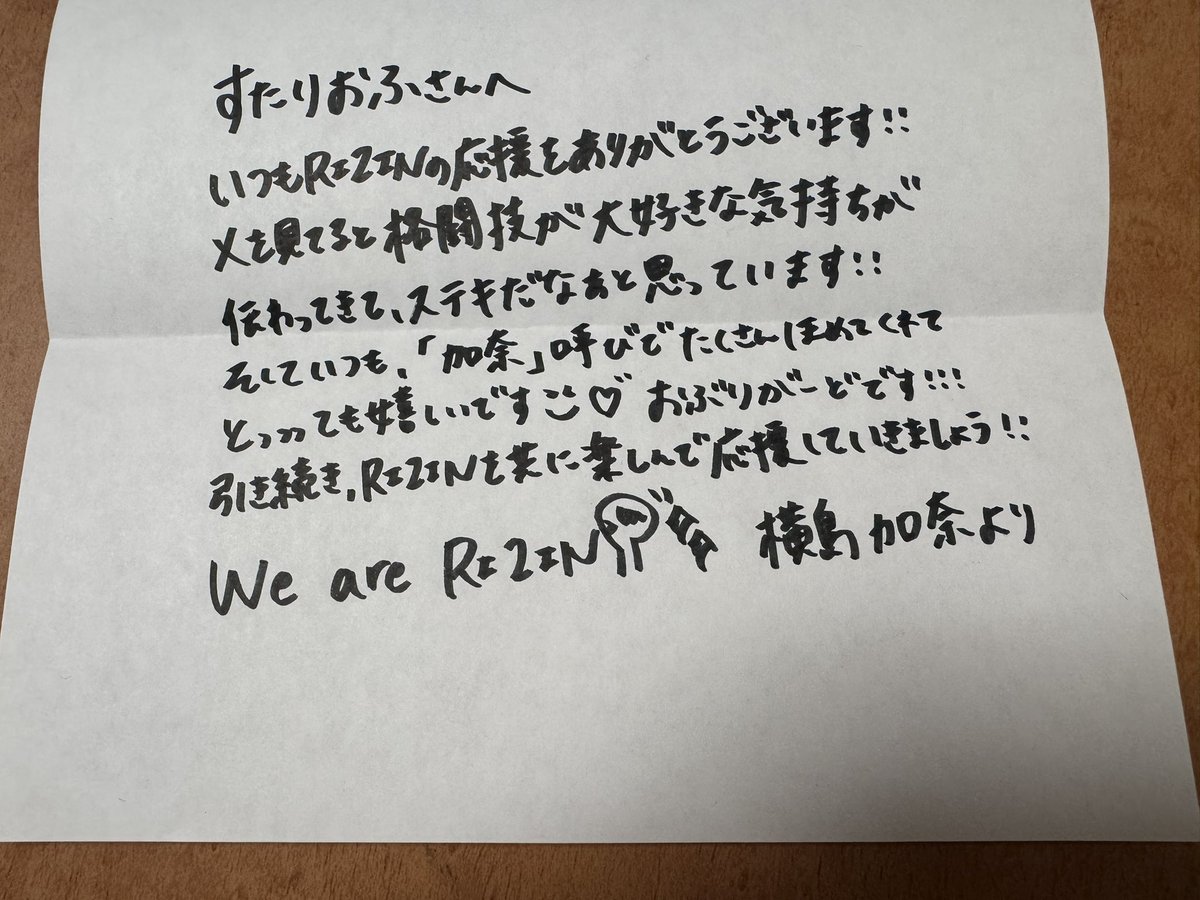 すたりおふさんへ
いつもRIZINの応援をありがとうございます!!
Xを見てると格闘技が大好きな気持ちが
伝わってきて、ステキだなぁと思っています!!
そしていつも、「加奈」呼びでたくさんほめてくれて
とっっても嬉しいです♡ おぶりがーどです!!!
引き続き、RIZINを共に楽しんで応援していきましょう!!
We are RIZIN 横島加奈より